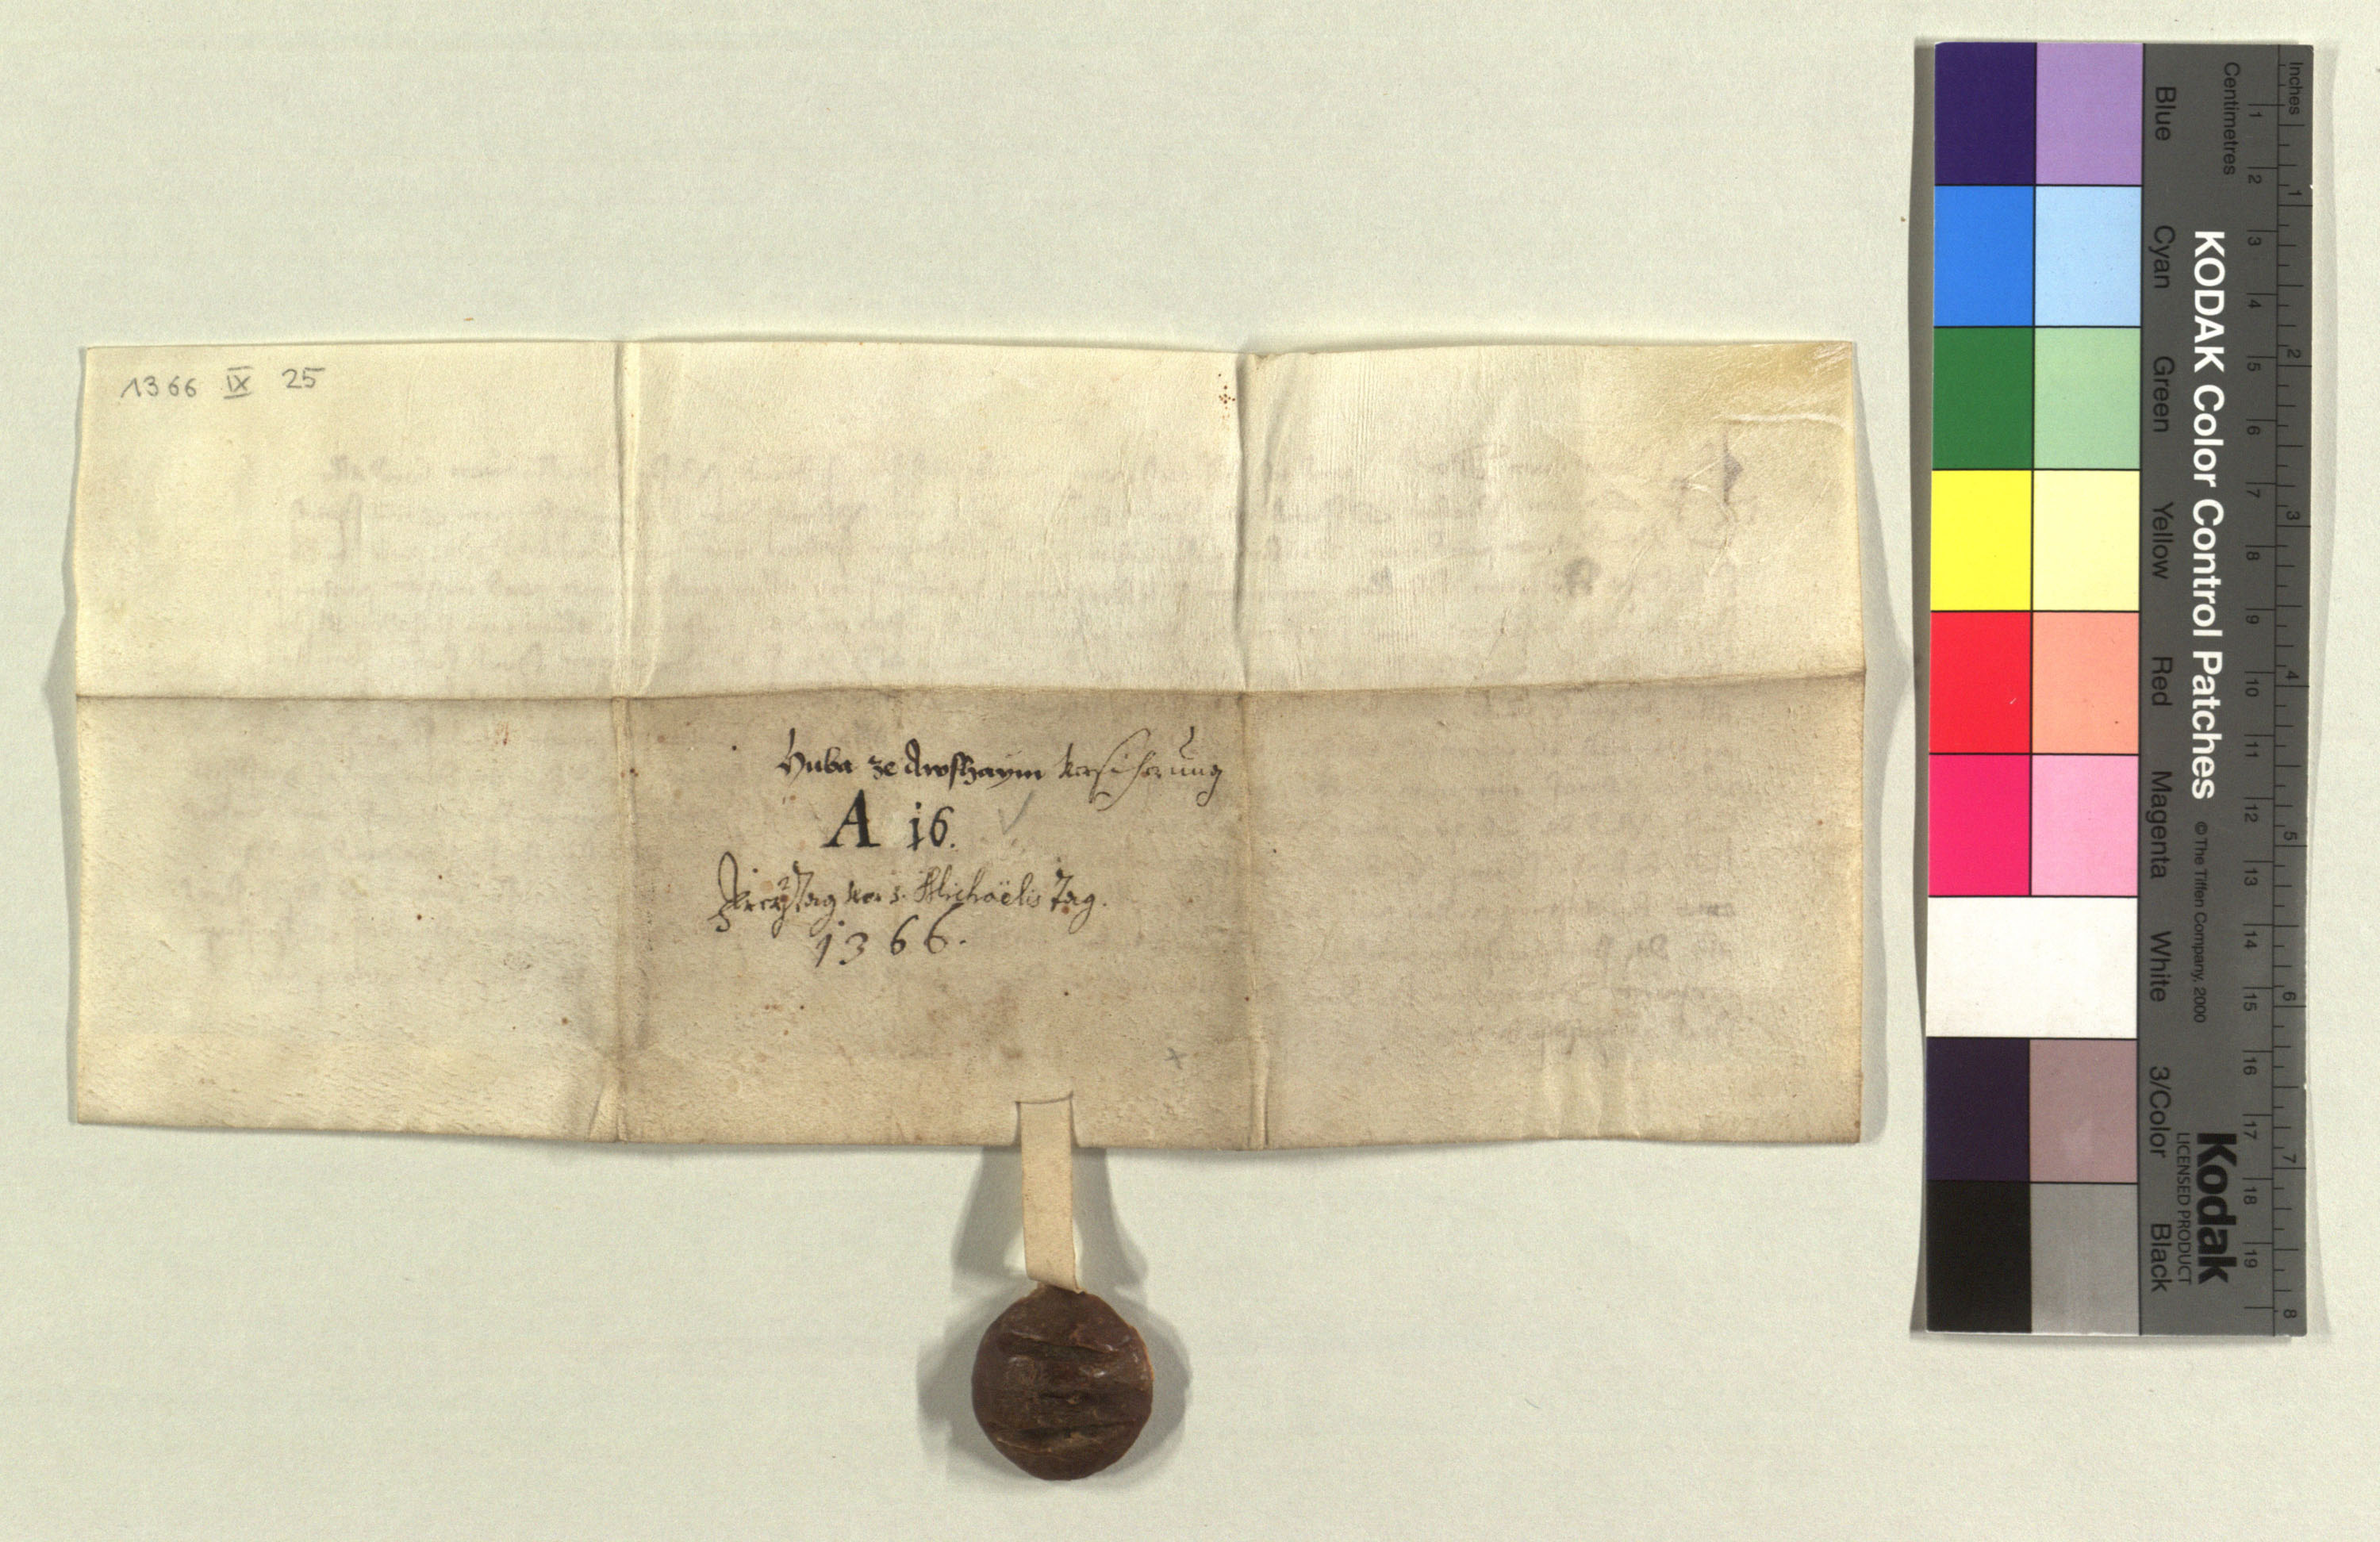 1366 IX 25
Huba ze Awshaym Versicherung
A i6.
FreyTag vor s. Michaëlis Tag.
1366.
Inches
Centimetres
1 2 3 4 5 6 7 8 9 10 11 12 13 14 15 16 17 18 19
1 2 3 4 5 6 7 8
KODAK Color Control Patches © The Tiffen Company, 2000
Kodak
LICENSED PRODUCT
Blue Cyan Green Yellow Red Magenta White 3/Color Black